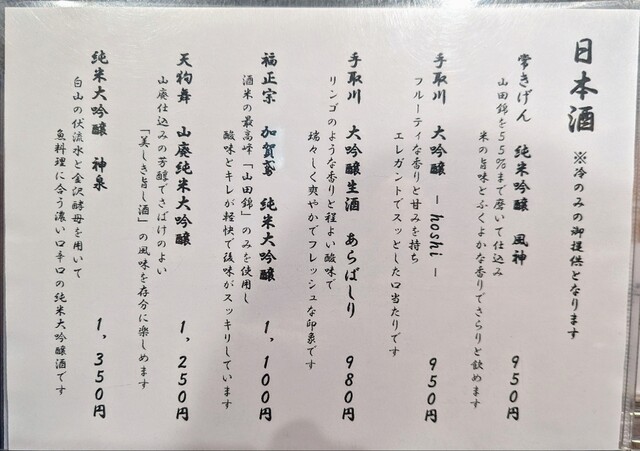 日本酒 ※冷のみの御提供となります
常きげん 純米吟醸 風神 950円
山田錦を55%まで磨いて仕込み
米の旨味とふくよかな香りでさらりと飲めます
手取川 大吟醸 －hoshi－ 950円
フルーティな香りと甘みを持ち
エレガントでスッとした口当たりです
手取川 大吟醸生酒 あらばしり 980円
リンゴのような香りと程よい酸味で
瑞々しく爽やかでフレッシュな印象です
福正宗 加賀鳶 純米大吟醸 1,100円
酒米の最高峰「山田錦」のみを使用し
酸味とキレが軽快で後味がスッキリしています
天狗舞 山廃純米大吟醸 1,250円
山廃仕込みの芳醇でさばけのよい
「美しき旨し酒」の風味を存分に楽しめます
純米大吟醸 神泉 1,350円
白山の伏流水と金沢酵母を用いて
魚料理に合う濃い口辛口の純米大吟醸酒です